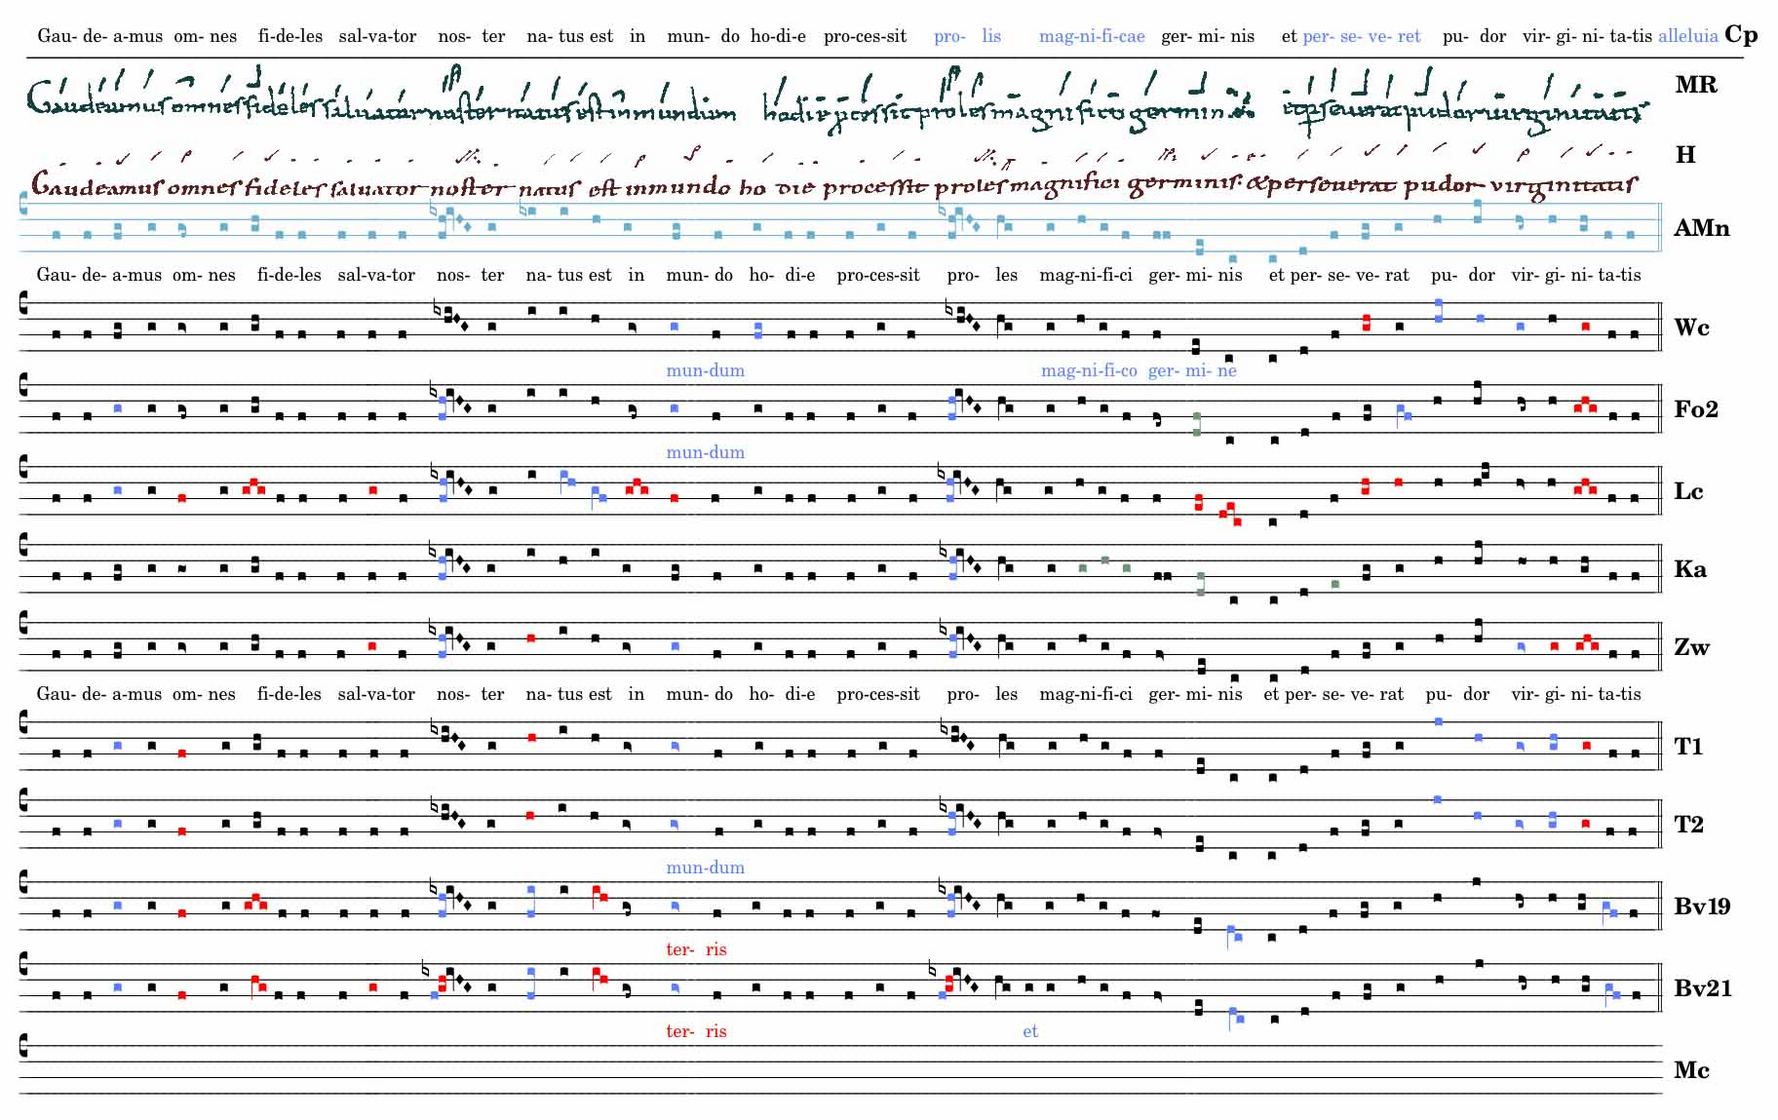 Gau- de- a-mus om- nes fi-de-les sal-va-tor nos- ter na- tus est in mun- do ho-di-e pro-ces-sit pro- lis mag-ni-fi-cae ger- mi- nis et per- se- ve- ret pu- dor vir- gi- ni- ta-tis alleluia Cp
Gaudeamus omnes fideles salvator noster natus est in mundum hodie processit proles magnifico germin et perseverat pudor virginitatis MR
Gaudeamus omnes fideles salvator noster natus est in mundo ho die processit proles magnifici germinis. & perseverat pudor virginitatis H
AMn
Gau- de- a-mus om- nes fi-de-les sal-va-tor nos- ter na- tus est in mun- do ho- di-e pro-ces-sit pro- les mag-ni-fi-ci ger- mi- nis et per- se- ve- rat pu- dor vir- gi- ni- ta-tis
Wc
mun-dum mag-ni-fi-co ger- mi- ne
Fo2
mun-dum
Lc
Ka
Zw
Gau- de- a-mus om- nes fi-de-les sal-va-tor nos- ter na- tus est in mun- do ho- di-e pro-ces-sit pro- les mag-ni-fi-ci ger- mi- nis et per- se- ve- rat pu- dor vir- gi- ni- ta-tis
T1
T2
mun-dum
Bv19
ter- ris
Bv21
ter- ris et
Mc